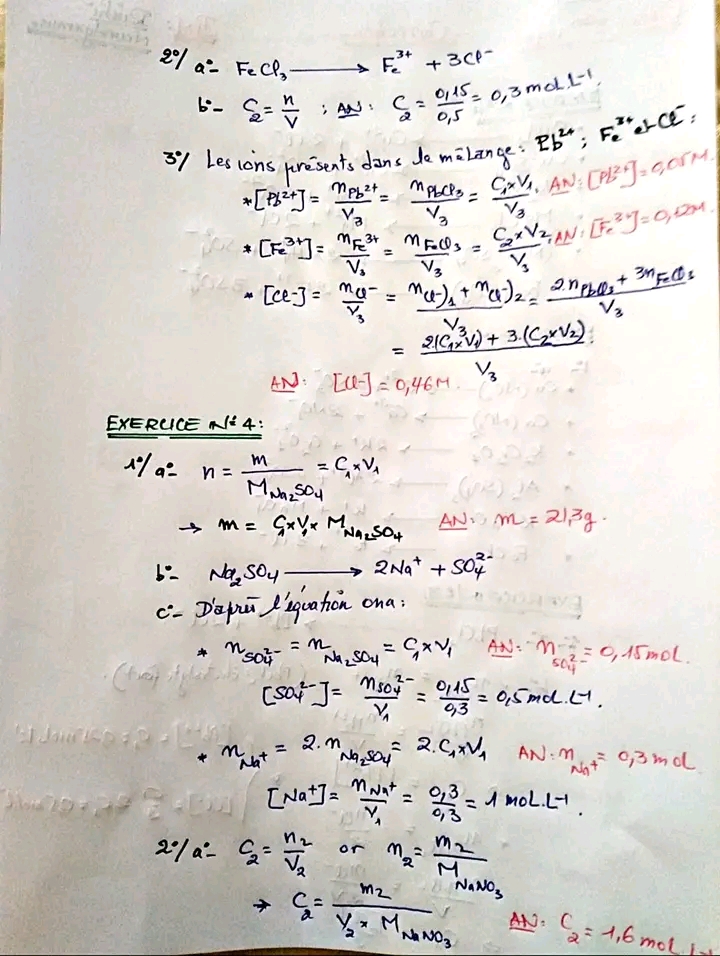 2°/ a°- FeCl₃ ⟶ Fe³⁺ + 3Cl⁻
b°- C₂ = n/V ; AN: C₂ = 0,15/0,5 = 0,3 mol.L⁻¹.
3°/ Les ions présents dans le mélange: Pb²⁺ ; Fe³⁺ et Cl⁻ :
* [Pb²⁺] = nPb²⁺/V₃ = nPbCl₃/V₃ = C₁×V₁/V₃. AN: [Pb²⁺] = 0,05M.
* [Fe³⁺] = nFe³⁺/V₃ = nFeCl₃/V₃ = C₂×V₂/V₃. AN: [Fe³⁺] = 0,12M.
* [Cl⁻] = nCl⁻/V₃ = (nCl⁻)₁ + nCl⁻)₂)/V₃ = (2.nPbCl₃ + 3nFeCl₃)/V₃
= (2(C₁×V₁) + 3.(C₂×V₂))/V₃.
AN: [Cl⁻] = 0,46M.
EXERCICE N° 4:
1°/ a°- n = m/MNa₂SO₄ = C₁×V₁
→ m = C₁×V₁×MNa₂SO₄ AN: m = 21,3g.
b°- Na₂SO₄ ⟶ 2Na⁺ + SO₄²⁻
c°- D'après l'équation ona:
* nSO₄²⁻ = nNa₂SO₄ = C₁×V₁ AN: nSO₄²⁻ = 0,15mol.
[SO₄²⁻] = nSO₄²⁻/V₁ = 0,15/0,3 = 0,5mol.L⁻¹.
* nNa⁺ = 2.nNa₂SO₄ = 2.C₁×V₁ AN: nNa⁺ = 0,3mol
[Na⁺] = nNa⁺/V₁ = 0,3/0,3 = 1 mol.L⁻¹.
2°/ a°- C₂ = n₂/V₂ or n₂ = m₂/MNaNO₃
→ C₂ = m₂/(V₂ × MNaNO₃) AN: C₂ = 1,6mol.L⁻¹